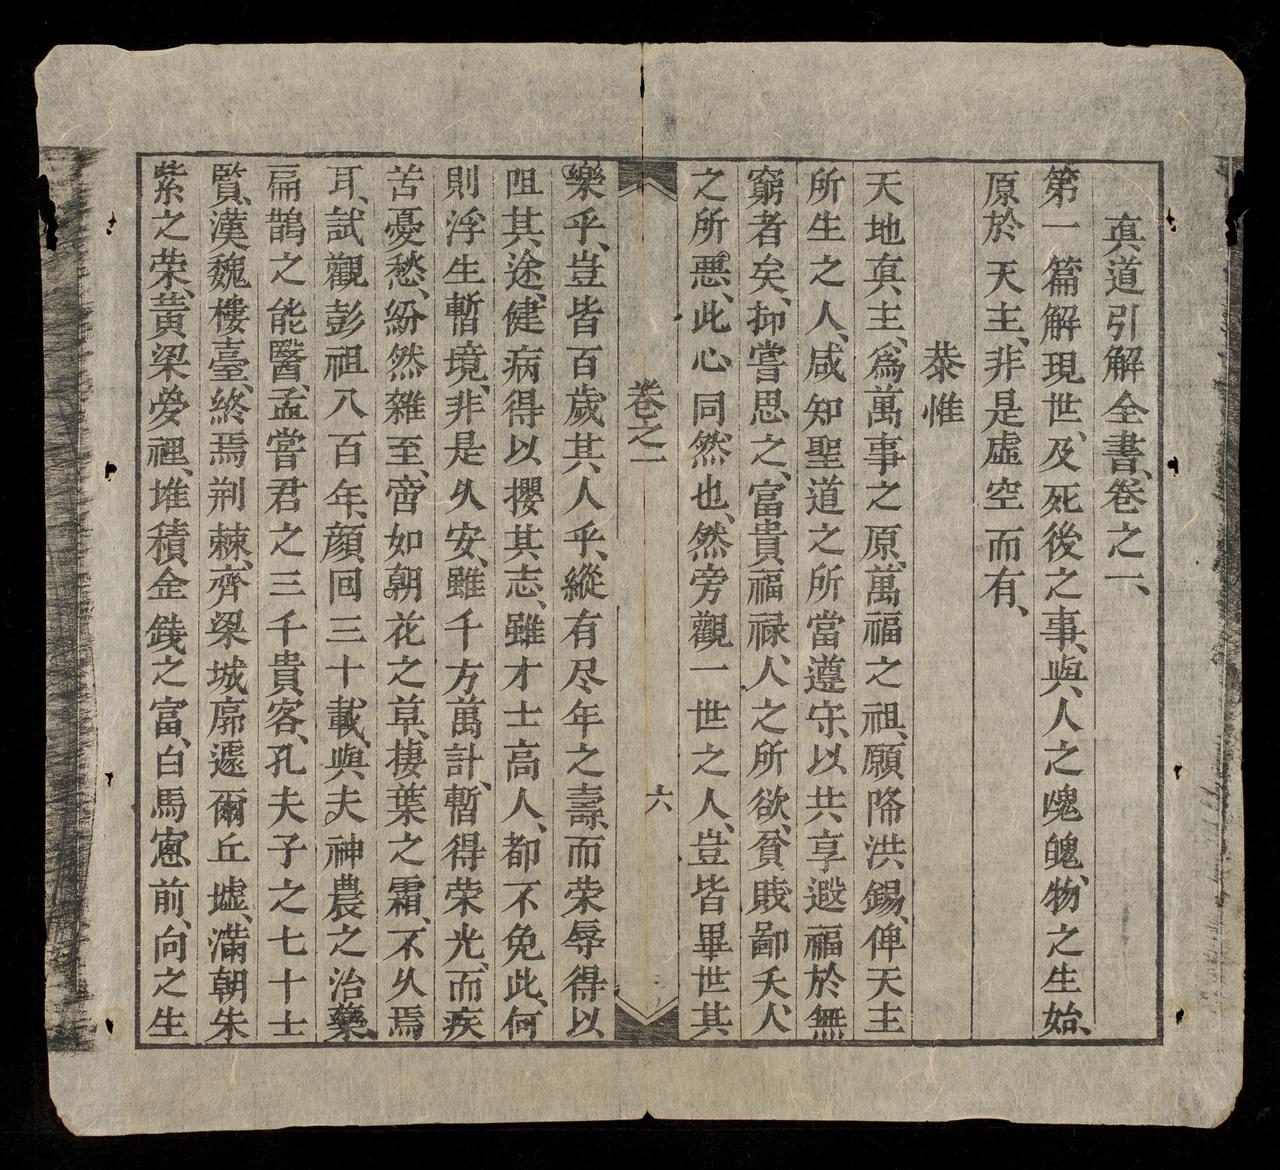 真道引解全書、卷之一、
第一篇解現世、及死後之事、與人之魂魄、物之生始、
原於 天主、非是虛空而有、
恭惟
天地真主、爲萬事之原、萬福之祖、願降洪錫、俾天主
所生之人、咸知聖道之所當遵守、以共享遐福於無
窮者矣、抑嘗思之、富貴福祿、人之所欲、貧賤鄙夭、人
之所惡、此心同然也、然旁觀一世之人、豈皆畢世其
卷之一
六
樂乎、豈皆百歲其人乎、縱有尽年之壽、而荣辱得以
阻其途、健病得以攖其志、雖才士高人、都不免此、何
則浮生暫境、非是久安、雖千方萬計、暫得荣光、而疾
苦憂愁、紛然雜至、啻如朝花之草、棲葉之霜、不久焉
耳、試觀彭祖八百年、顔回三十載、與夫神農之治藥、
扁鵲之能醫、孟嘗君之三千貴客、孔夫子之七十士
賢、漢魏樓臺、終焉荆棘、齊梁城廓、遽爾丘墟、滿朝朱
紫之荣、黄梁夢裡、堆積金錢之富、白馬窻前、向之生